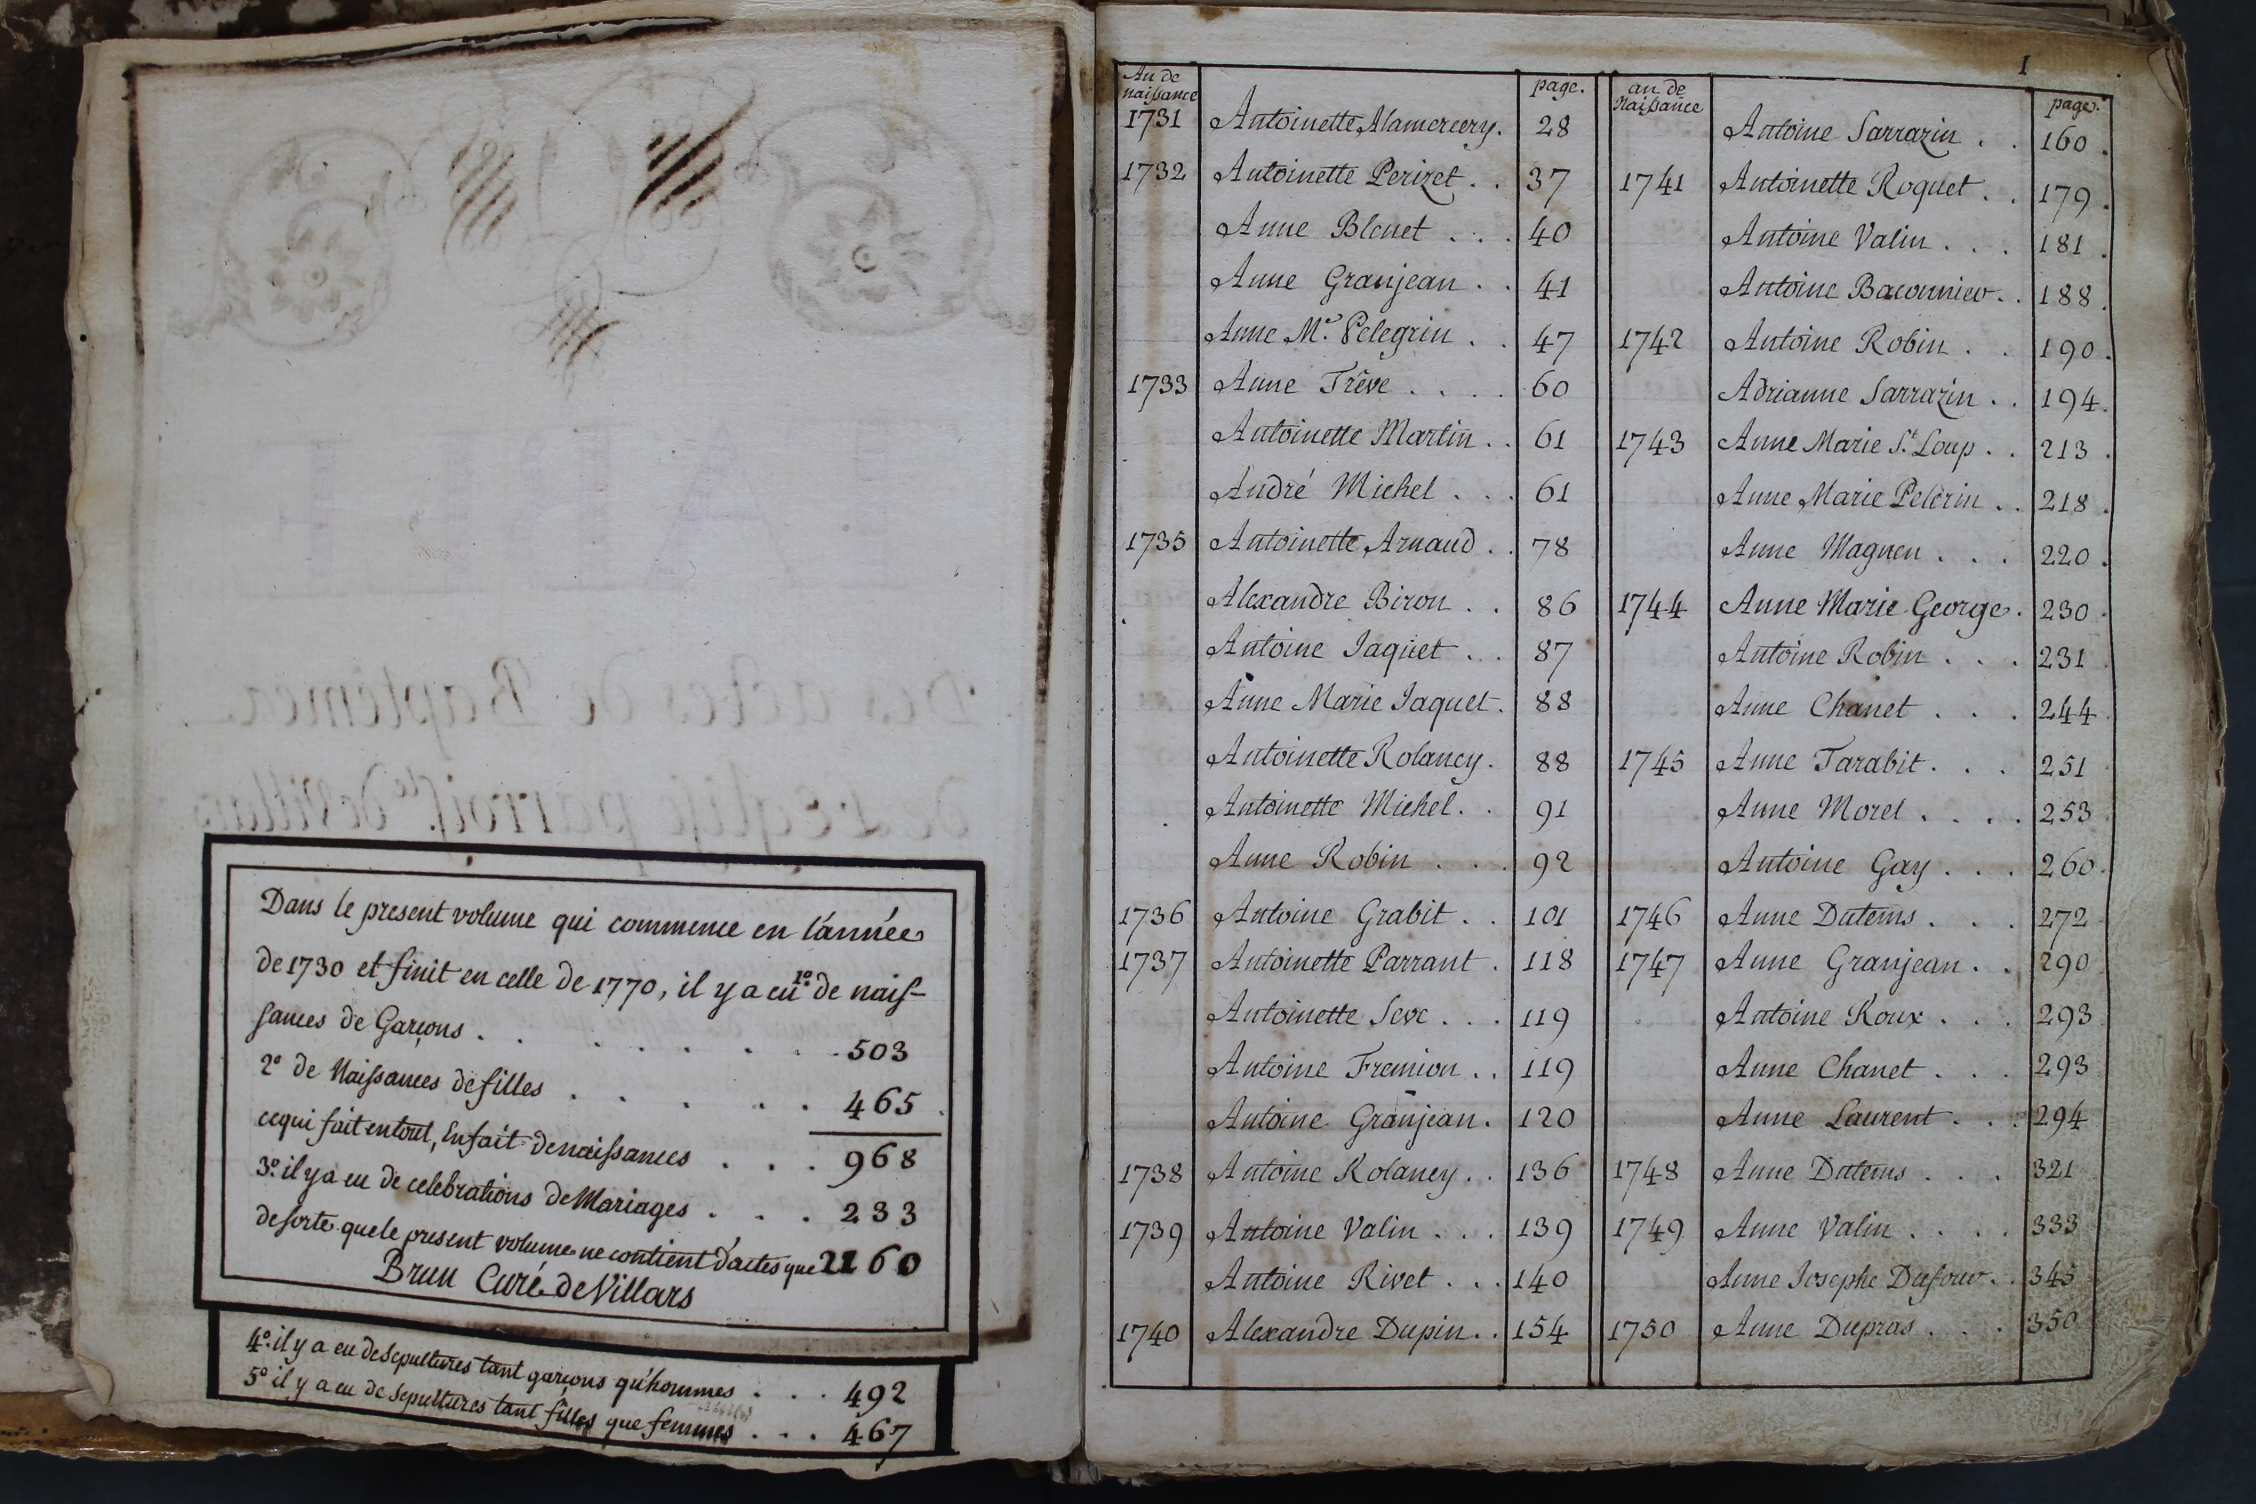 Dans le present volume qui commence en l'année
de 1730 et finit en celle de 1770, il y a eu 1º de naiſ-
ſances de Garçons . . . . . . . 503
2º de Naiſsances de filles . . . . . 465 .
ce qui fait en tout, En fait de naiſsances . . . 968
3º il y a eu de celebrations de Mariages . . . 233
de ſorte que le present volume ne contient d'actes que 2160
Brun Curé de Villars
4º il y a eu de sepultures tant garçons qu'hommes . . . 492
5º il y a eu de Sepultures tant filles que femmes . . . 467
1
An de naiſsance page.
1731 Antoinette Alamercery. 28
1732 Antoinette Perizet . . 37
Anne Blenet . . . 40
Anne Granjean . . 41
Anne Mᵉ. Pelegrin . . 47
1733 Anne Trêve . . . . 60
Antoinette Martin . . 61
André Michel . . . 61
1735 Antoinette Arnaud . . 78
Alexandre Biron . . 86
Antoine Jaquet . . 87
Anne Marie Jaquet . 88
Antoinette Rolancy . 88
Antoinette Michel . . 91
Anne Robin . . . 92
1736 Antoine Grabit . . 101
1737 Antoinette Parrant . 118
Antoinette Seve . . . 119
Antoine Fremion . . 119
Antoine Granjean . 120
1738 Antoine Rolancy . . 136
1739 Antoine Valin . . . 139
Antoine Rivet . . . 140
1740 Alexandre Dupin . . 154
an de Naiſsance page.
Antoine Sarrazin . . 160 .
1741 Antoinette Roquet . . 179 .
Antoine Valin . . . 181 .
Antoine Baconnier . . 188 .
1742 Antoine Robin . . 190 .
Adrianne Sarrazin . . 194 .
1743 Anne Marie Sᵗ. Loup . . 213 .
Anne Marie Pelerin . . 218 .
Anne Magnen . . . 220 .
1744 Anne Marie George . 230 .
Antoine Robin . . . 231
Anne Chanet . . . 244
1745 Anne Tarabit . . . 251
Anne Morel . . . . 253
Antoine Gay . . . 260 .
1746 Anne Dutems . . . 272
1747 Anne Granjean . . 290
Antoine Roux . . . 293
Anne Chanet . . . 293
Anne Laurent . . . 294
1748 Anne Dutems . . . 321
1749 Anne Valin . . . . 333
Anne Josephe Dufour . . 345
1750 Anne Dupras . . . 350